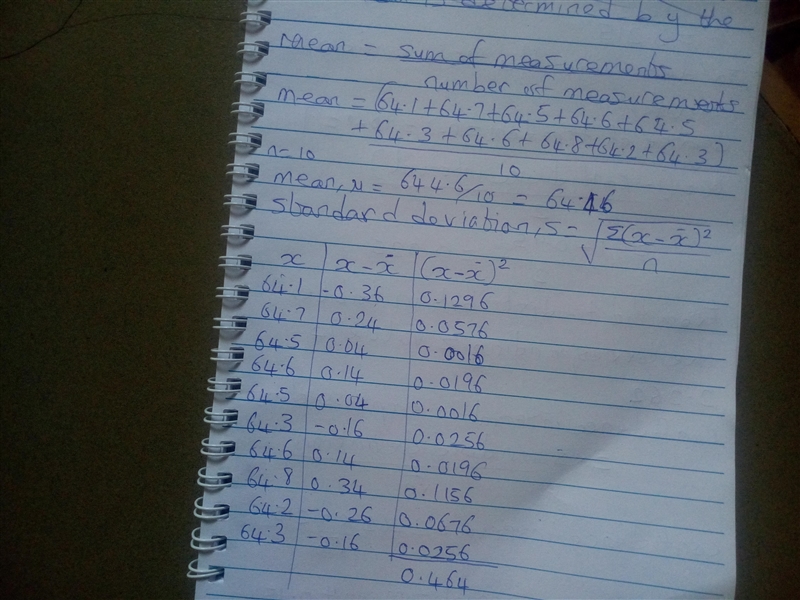 determined by the
mean = sum of measurements
number of measurements
mean = (64.1+64.7+64.5+64.6+64.5
+64.3+64.6+64.8+64.2+64.3)
n=10
10
mean, x = 644.6/10 = 64.46
standard deviation, S = √Σ(x-x̄)²
n
x x-x̄ (x-x̄)²
64.1 -0.36 0.1296
64.7 0.24 0.0576
64.5 0.04 0.0016
64.6 0.14 0.0196
64.5 0.04 0.0016
64.3 -0.16 0.0256
64.6 0.14 0.0196
64.8 0.34 0.1156
64.2 -0.26 0.0676
64.3 -0.16 0.0256
0.464